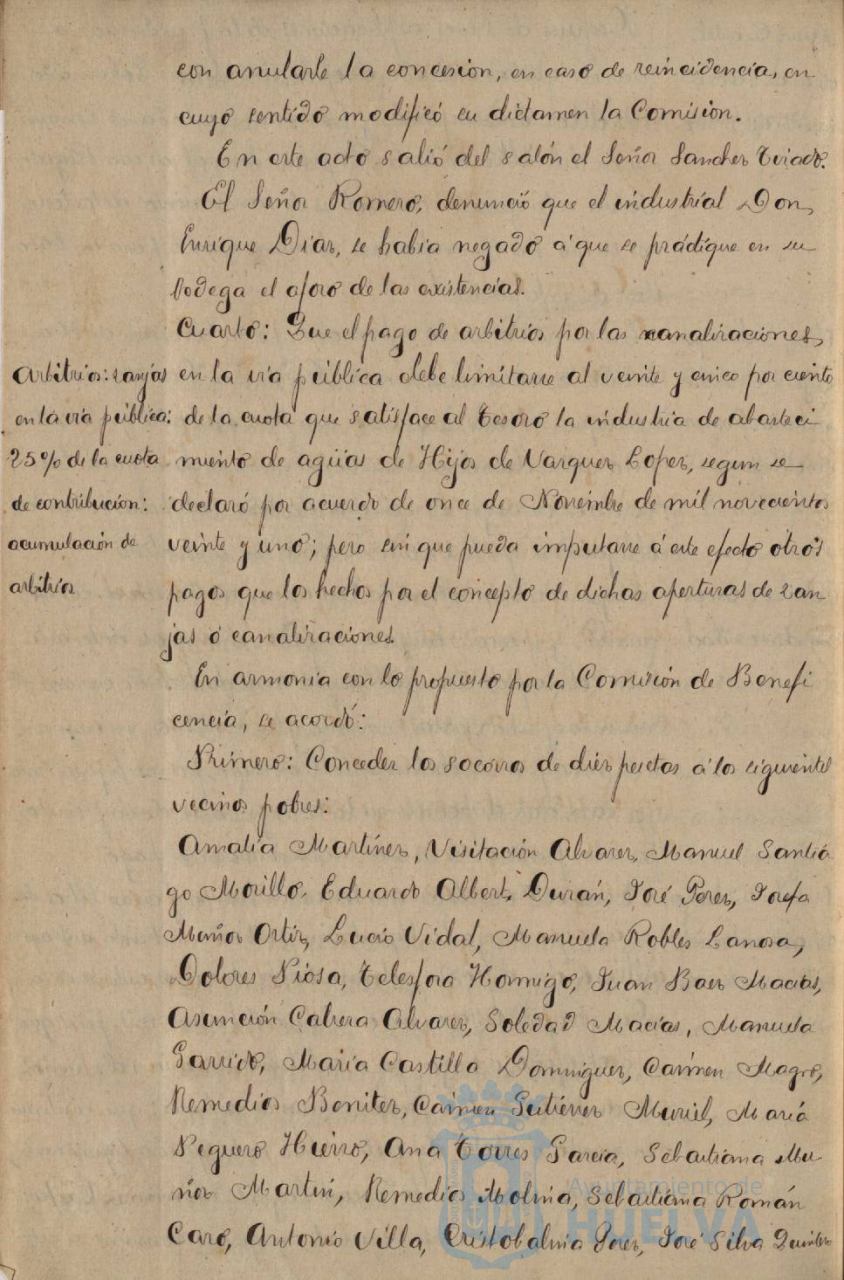 con anularle la concesion, en caso de reincidencia, en
cuyo sentido modificó su dictamen la Comision.
En este acto salió del salón el Señor Sanchez Tirado.
El Señor Romero, denunció que el industrial Don
Enrique Diaz, se habia negado á que se practique en su
bodega el aforo de las existencias.
Cuarto: Que el pago de arbitrios por las canalizaciones
Arbitrios: zanjas
en la via pública:
25% de la cuota
de contribucion:
acumulación de
arbitrios
en la via pública debe limitarse al veinte y cinco por ciento
de la cuota que satisface al Tesoro la industria de abasteci
miento de aguas de Hijos de Vazquez Lopez, segun se
declaró por acuerdo de once de Noviembre de mil novecientos
veinte y uno; pero sin que pueda imputarse á este efecto otros
pagos que los hechos por el concepto de dichas aperturas de zan
jas ó canalizaciones.
En armonia con lo propuesto por la Comisión de Benefi
cencia, se acordó:
Primero: Conceder los socorros de diez pesetas á los siguientes
vecinos pobres:
Amalia Martínez, Visitación Alvarez, Manuel Santia
go Morillo, Eduardo Albert Durán, José Perez, Josefa
Muñoz Ortiz, Lucio Vidal, Manuela Robles Lanosa,
Dolores Piosa, Telesfora Hormigo, Juan Baez Macias,
Asunción Cabrera Alvarez, Soledad Macías, Manuela
Garrido, Maria Castilla Dominguez, Carmen Magro,
Remedios Benitez, Carmen Gutiérrez Muriel, María
Peguero Hierro, Ana Torres Garcia, Sebastiana Mu
ñoz Martin, Remedios Molina, Sebastiana Román
Caro, Antonio Villa, Cristobalina Perez, José Silva Quintero
Ayuntamiento de
HUELVA